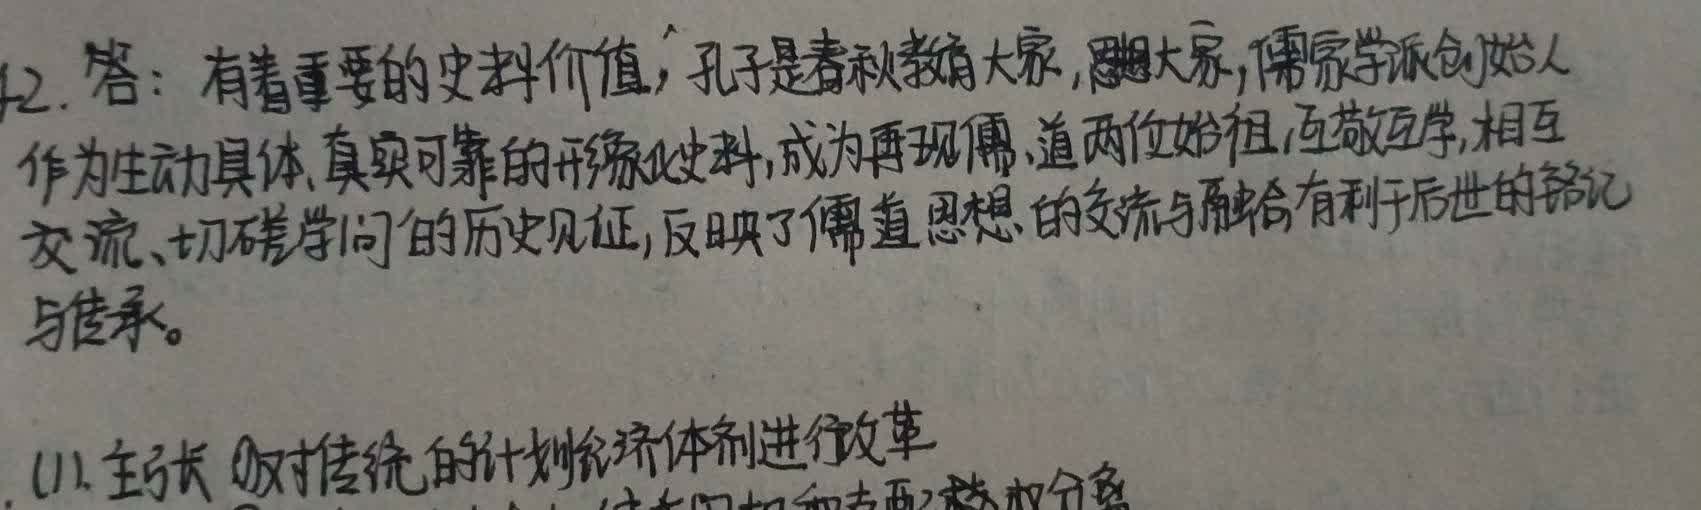 42. 答：有着重要的史料价值，孔子是春秋教育大家，思想大家，儒家学派创始人
作为生动具体、真实可靠的形象化史料，成为再现儒、道两位始祖，互敬互学，相互
交流、切磋学问的历史见证，反映了儒道思想的交流与融合有利于后世的铭记
与传承。
(1). 主张①对传统的计划经济体制进行改革
权分离